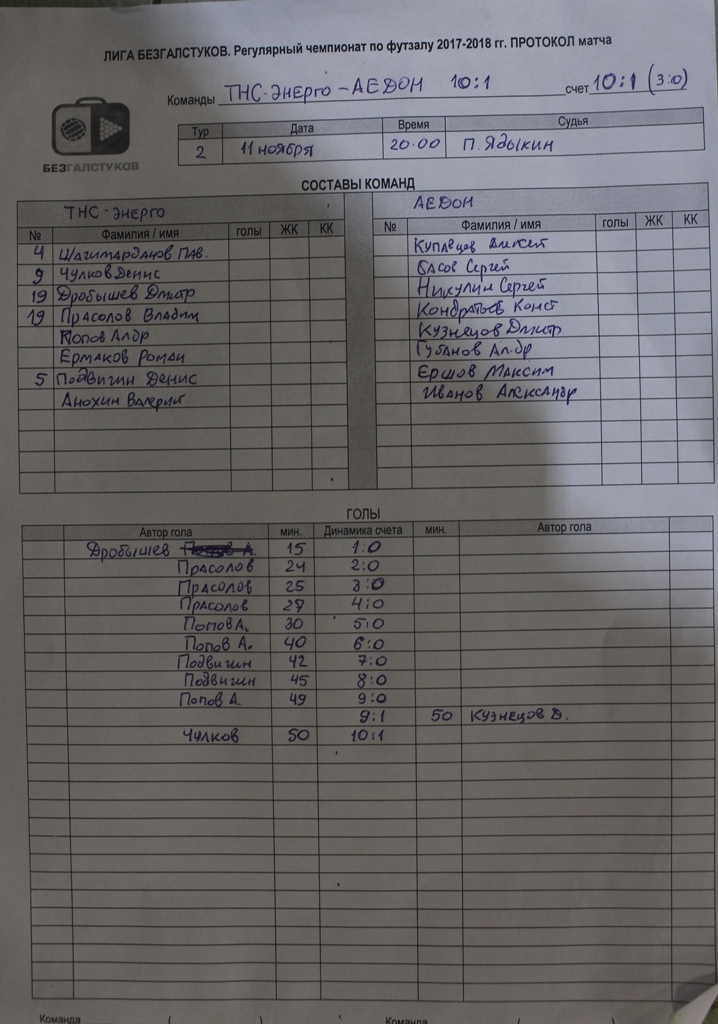 ЛИГА БЕЗГАЛСТУКОВ. Регулярный чемпионат по футзалу 2017-2018 гг. ПРОТОКОЛ матча
Команды ТНС-Энерго - АЕДОН 10:1 счет 10:1 (3:0)
БЕЗГАЛСТУКОВ
Тур Дата Время Судья
2 11 ноября 20-00 П. Ядыкин
СОСТАВЫ КОМАНД
ТНС-Энерго АЕДОН
№ Фамилия / имя голы ЖК КК № Фамилия / имя голы ЖК КК
4 Шагимарданов Пав. Алексей
9 Чулков Денис Басов Сергей
19 Дробышев Дмитр Никулин Сергей
19 Прасолов Владим Кондратьев Конст
Попов Ал-др Кузнецов Дмитр
Ермаков Роман Губанов Ал-др
5 Подвигин Денис Ершов Максим
Анохин Валерий Иванов Александр
ГОЛЫ
Автор гола мин. Динамика счета мин. Автор гола
Дробышев 15 1:0
Прасолов 24 2:0
Прасолов 25 3:0
Прасолов 27 4:0
Попов А. 30 5:0
Попов А. 40 6:0
Подвигин 42 7:0
Подвигин 45 8:0
Попов А. 49 9:0
9:1 50 Кузнецов Д.
Чулков 50 10:1
Команда ( ) Команда ( )